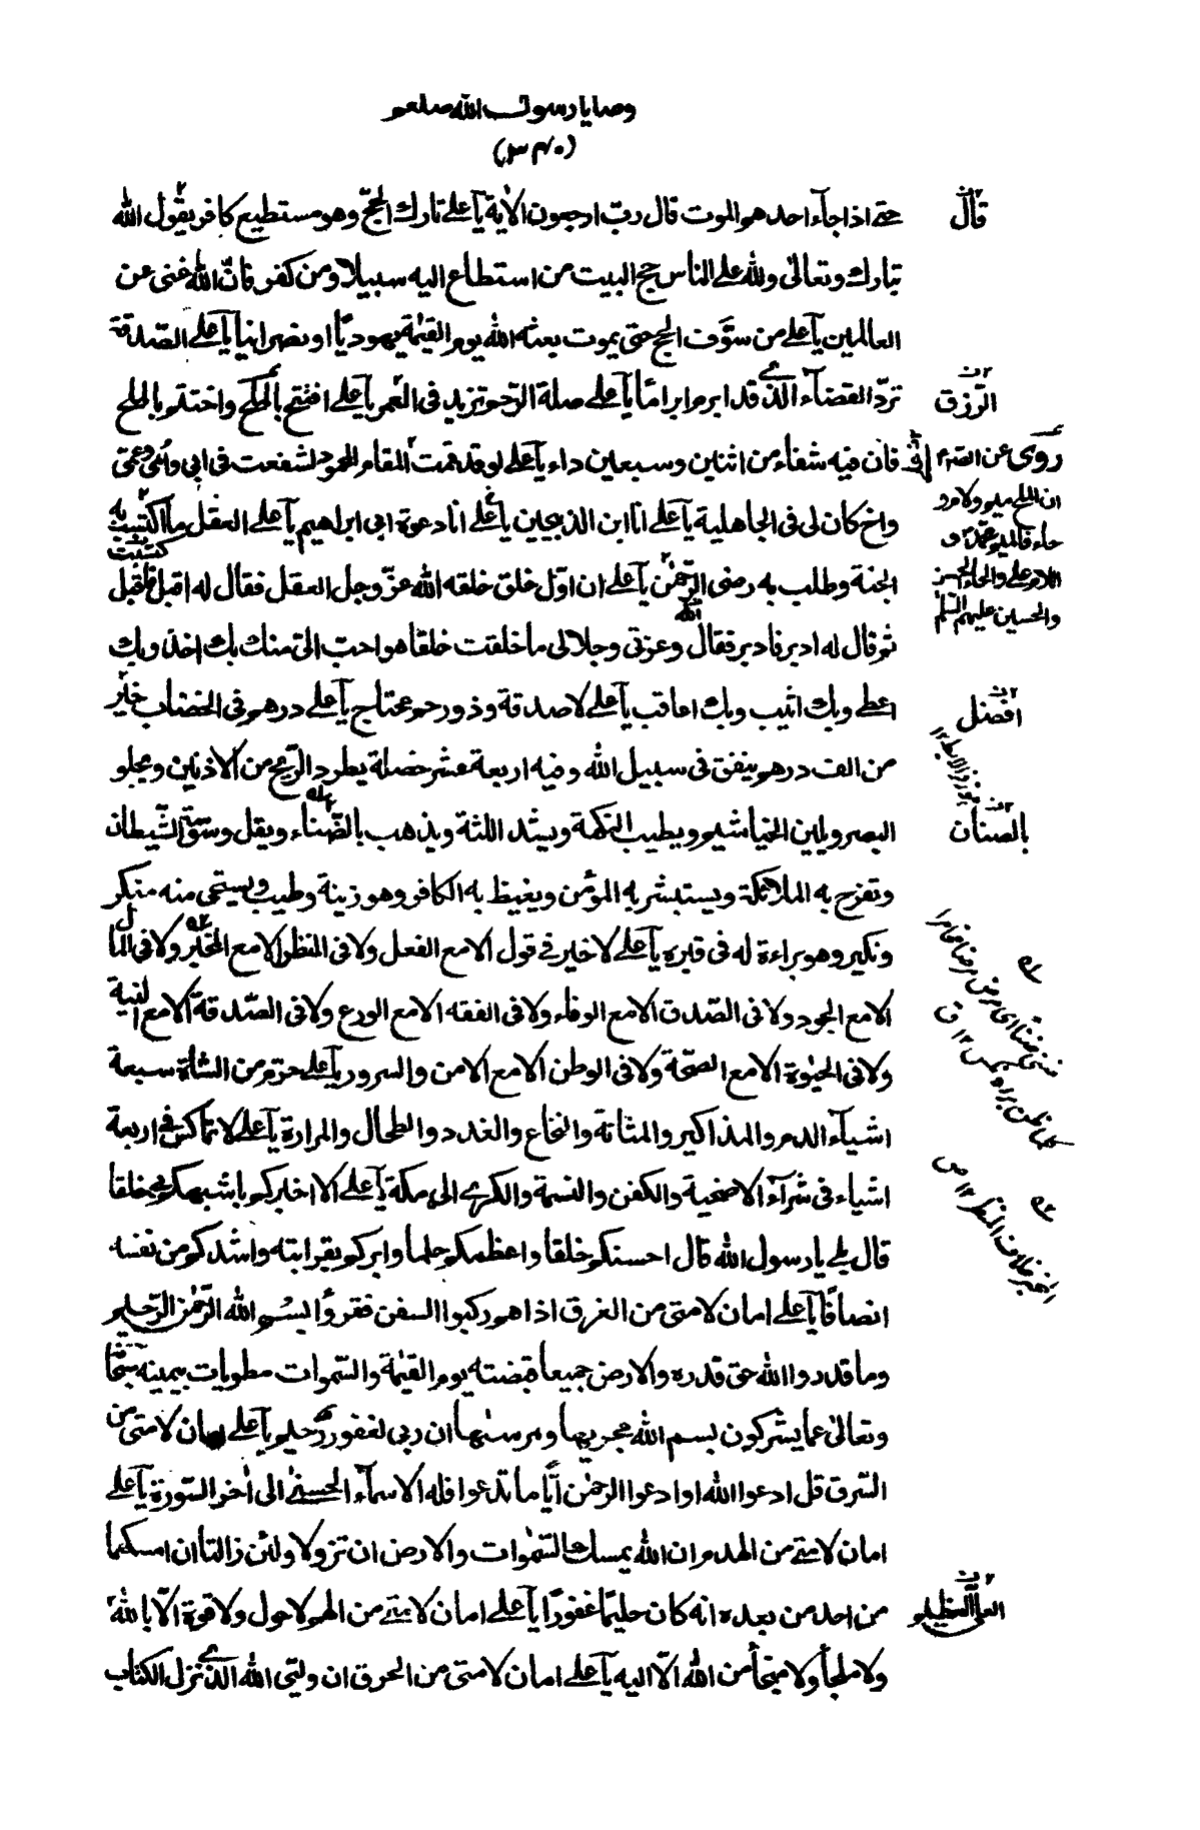 وصايا رسول الله صلعم
(٣٤٠)
حتى اذا جآء احدهم الموت قال رب ارجعون الاية يآ على تارك الحجّ وهو مستطيع كافر يقول الله
قال
تبارك وتعالى ولله على الناس حج البيت من استطاع اليه سبيلا ومن كفر فانّ الله غنى عن
العالمين يآ على من سوّف الحج حتى يموت بعثه الله يوم القيٰمة يهوديّا او نصرانيا يآ على الصّدقة
تردّ القضآء الّذى قد ابرم ابراما يآ على صلة الرّحم تزيد فى العمر يآ على افتتح بالملح واختتم بالملح
الرّزق
فان فيه شفاء من اثنين وسبعين داء يآ على لو قد قمت المقام المحمود لشفعت فى ابى وامّى وعمّى
واخ كان لى فى الجاهلية يآ على انا ابن الذبيحين يآ على انا دعوة ابى ابراهيم يآ على العقل ما اكتسب به
الجنة وطلب به رضى الرّحمٰن يآ على ان اوّل خلق خلقه الله عزّ وجل العقل فقال له اقبل فاقبل
ثم قال له ادبر فادبر فقال وعزتى وجلالى ما خلقت خلقا هو احبّ الىّ منك بك اخذ وبك
اعطى وبك اثيب وبك اعاقب يآ على لا صدقة وذو رحم محتاج يآ على درهم فى الخضاب خير
افضل
من الف درهم ينفق فى سبيل الله وفيه اربعة عشر خصلة يطرد الرّيح من الاذنين ويجلو
البصر ويلين الخياشيم ويطيب النكهة ويشد اللثة ويذهب بالضّناء ويقل وسوسة الشّيطان
بالصنان
وتفرح به الملائكة ويستبشر به المؤمن ويغيظ به الكافر وهو زينة وطيب ويستحى منه منكر
ونكير وهو براءة له فى قبره يآ على لا خير فى قول الا مع الفعل ولا فى المنظر الا مع المخبر ولا فى المال
الا مع الجود ولا فى الصّدق الا مع الوفاء ولا فى الفقه الا مع الورع ولا فى الصّدقة الا مع النية
ولا فى الحيٰوة الا مع الصّحة ولا فى الوطن الا مع الامن والسرور يآ على حرّم من الشاة سبعة
اشيآء الدم والمذاكير والمثانة والنخاع والغدد والطحال والمرارة يآ على لا تماكس فى اربعة
اشياء فى شرآء الاضحية والكفن والنسمة والكرى الى مكة يآ على الا اخبركم باشبهكم بى خلقا
قال بلى يا رسول الله قال احسنكم خلقا واعظمكم حلما وابركم بقرابته واشدكم من نفسه
انصافًا يآ على امان لامتى من الغرق اذا هم ركبوا السفن فقرؤا بسم الله الرّحمٰن الرّحيم
وما قدروا الله حق قدره والارض جميعا قبضته يوم القيٰمة والسّموات مطويات بيمينه سبحانه
وتعالىٰ عما يشركون بسم الله مجريٰها ومرسٰها ان ربى لغفور رّحيم يآ على امان لامتى من
السّرق قل ادعوا الله او ادعوا الرحمٰن ايًّا ما تدعوا فله الاسمآء الحسنىٰ الى اٰخر السّورة يآ على
امان لامتى من الهدم ان الله يمسك السّمٰوات والارض ان تزولا ولئن زالتا ان امسكهما
من احد من بعده انه كان حليمًا غفورًا يآ على امان لامتى من الهم لا حول ولا قوة الّا بالله
العلى العظيم
ولا ملجأ ولا منجأ من الله الّا اليه يآ على امان لامتى من الحرق ان وليّى الله الّذى نزل الكتاب